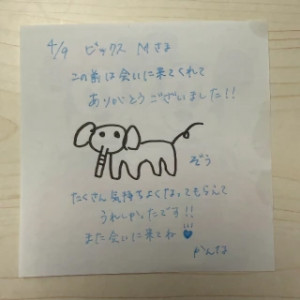 4/9 ビックス Mさま
この前は会いに来てくれて
ありがとうございました!!
ぞう
たくさん気持ちよくなってもらえて
うれしかったです!!
また会いに来てね
かんな